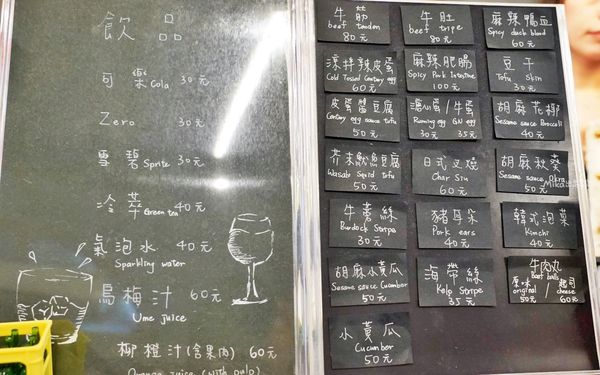 飲品
可樂 Cola 30元
Zero 30元
雪碧 Sprite 30元
冷萃 Green tea 40元
氣泡水 40元
Sparkling water
烏梅汁 60元
Ume juice
柳橙汁(含果肉) 60元
Orange juice (with pulp)
牛筋
beef tendon
80元
牛肚
beef tripe
80元
麻辣鴨血
Spicy duck blood
60元
涼拌辣皮蛋
Cold Tossed Century egg
60元
麻辣肥腸
Spicy Pork Intestine
100元
豆干
Tofu Skin
30元
皮蛋醬豆腐
Century egg sauce tofu
50元
溏心蛋/牛蛋
Running egg GN egg
30元 35元
胡麻花椰
Sesame sauce Broccoli
40元
芥末魷魚豆腐
Wasabi Squid tofu
50元
日式叉燒
Char Siu
60元
胡麻秋葵
Sesame sauce Okra
50元
牛蒡絲
Burdock Stripe
30元
豬耳朵
Pork ears
40元
韓式泡菜
Kimchi
40元
胡麻小黃瓜
Sesame sauce Cucumber
50元
海帶絲
Kelp Stripe
35元
牛肉丸
beef balls
原味 / 起司
original / cheese
50元 60元
小黃瓜
Cucumber
50元